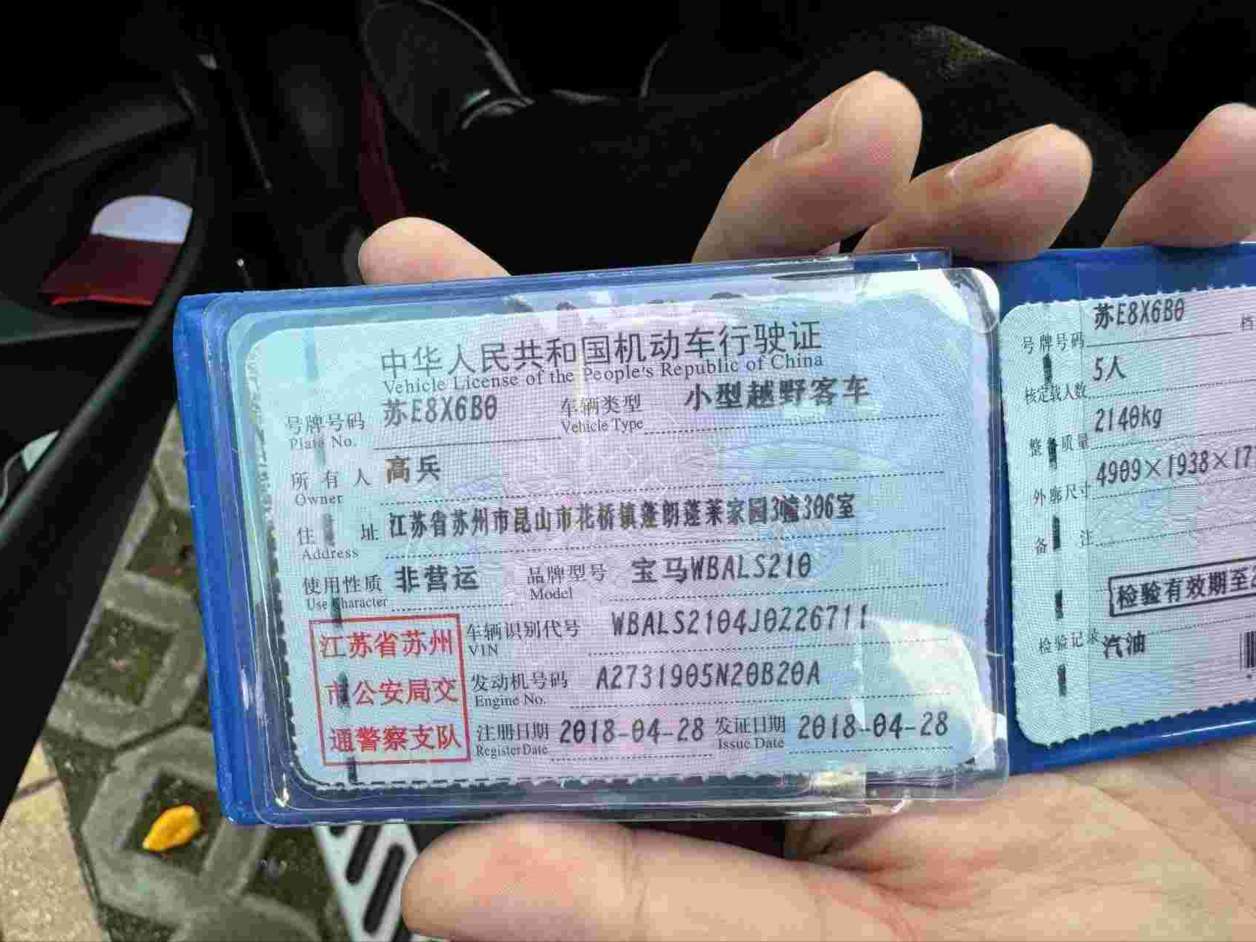 中华人民共和国机动车行驶证
Vehicle License of the People's Republic of China
号牌号码 苏E8X6B0 车辆类型 小型越野客车
Plate No. Vehicle Type
所有人 高兵
Owner
住址 江苏省苏州市昆山市花桥镇蓬朗蓬莱家园3幢306室
Address
使用性质 非营运 品牌型号 宝马WBALS210
Use Character Model
江苏省苏州
市公安局交
通警察支队
车辆识别代号 WBALS2104J0Z26711
VIN
发动机号码 A2731905N20B20A
Engine No.
注册日期 2018-04-28 发证日期 2018-04-28
Register Date Issue Date
号牌号码 苏E8X6B0
核定载人数 5人
整备质量 2140kg
外廓尺寸 4909×1938×17
备注
检验有效期至
检验记录 汽油